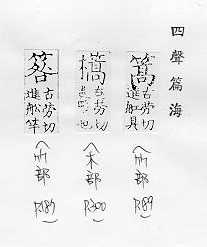 四聲篇海
篙
古勞切
進船具
(竹部
P.189)
古勞切
(木部
P.300)
古勞切
進船竿
(竹部
P.189)